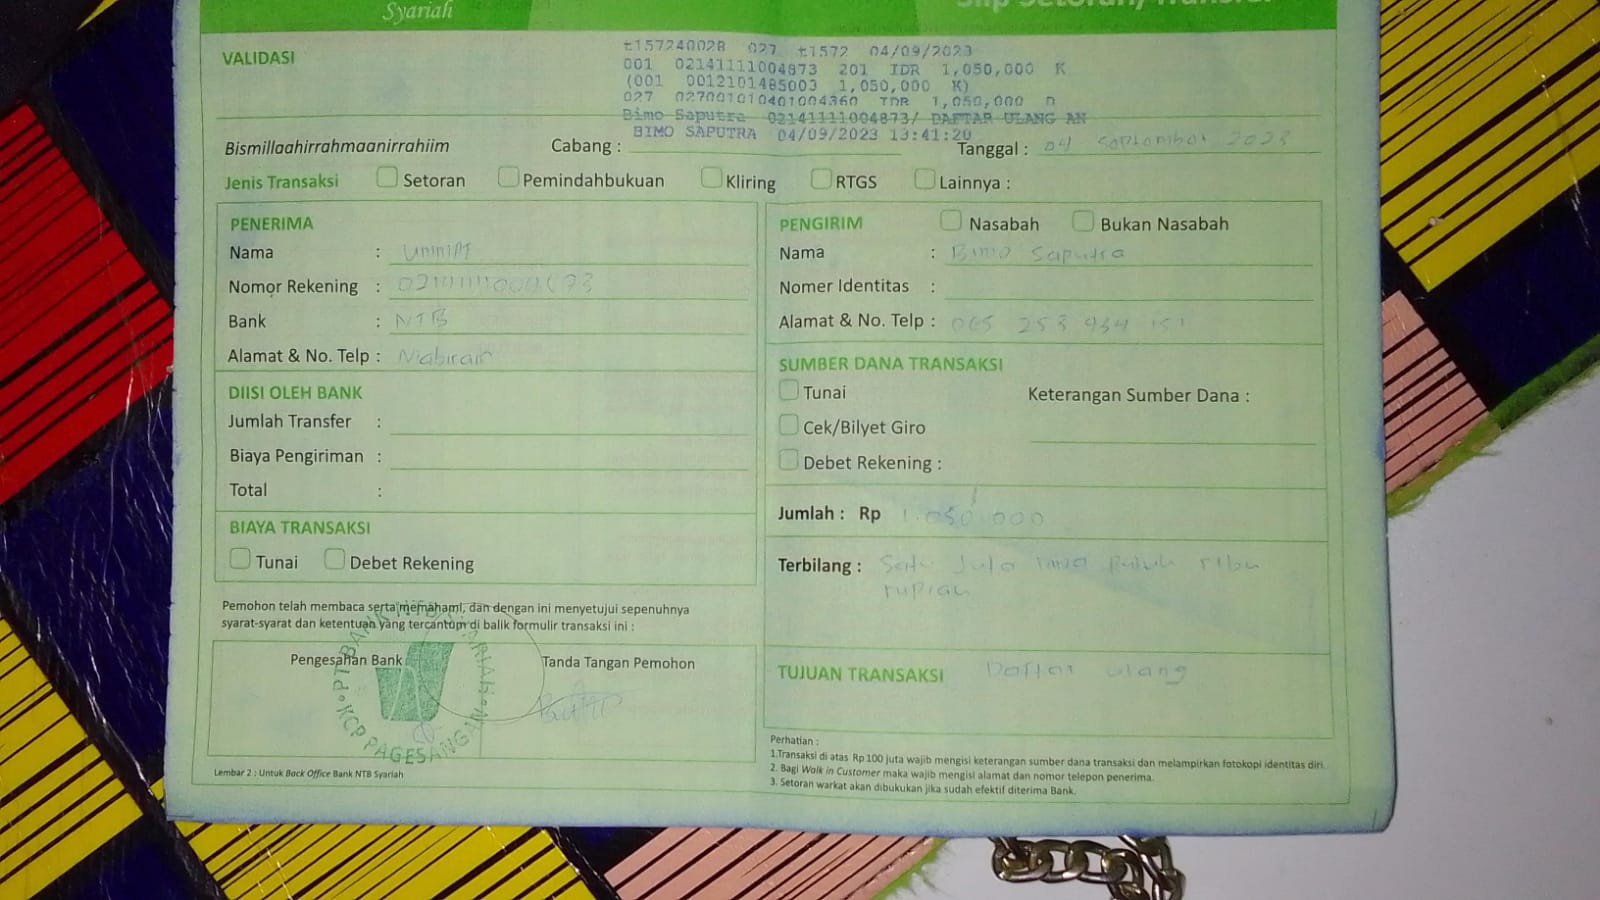 Syariah
Slip Setoran/Transfer
VALIDASI
t15724002B 027 t1572 04/09/2023
001 02141111004873 201 IDR 1,050,000 K
(001 0012101485003 1,050,000 K)
027 027001010401004360 IDR 1,050,000 D
Bimo Saputra 02141111004873/ DAFTAR ULANG AN
BIMO SAPUTRA 04/09/2023 13:41:20
Bismillaahirrahmaanirrahiim Cabang : Tanggal : 04 September 2023
Jenis Transaksi Setoran Pemindahbukuan Kliring RTGS Lainnya :
PENERIMA
Nama : UMMAT
Nomor Rekening :
Bank : NTB
Alamat & No. Telp :
DIISI OLEH BANK
Jumlah Transfer :
Biaya Pengiriman :
Total :
BIAYA TRANSAKSI
Tunai Debet Rekening
Pemohon telah membaca serta memahami, dan dengan ini menyetujui sepenuhnya
syarat-syarat dan ketentuan yang tercantum di balik formulir transaksi ini :
Pengesahan Bank Tanda Tangan Pemohon
PT BANK NTB SYARIAH
KCP PAGESANGAN
Lembar 2 : Untuk Back Office Bank NTB Syariah
PENGIRIM Nasabah Bukan Nasabah
Nama : Bimo Saputra
Nomer Identitas :
Alamat & No. Telp :
SUMBER DANA TRANSAKSI
Tunai Keterangan Sumber Dana :
Cek/Bilyet Giro
Debet Rekening :
Jumlah : Rp 1.050.000
Terbilang : Satu Juta lima puluh ribu
rupiah
TUJUAN TRANSAKSI Daftar ulang
Perhatian :
1.Transaksi di atas Rp 100 juta wajib mengisi keterangan sumber dana transaksi dan melampirkan fotokopi identitas diri.
2. Bagi Walk in Customer maka wajib mengisi alamat dan nomor telepon penerima.
3. Setoran warkat akan dibukukan jika sudah efektif diterima Bank.